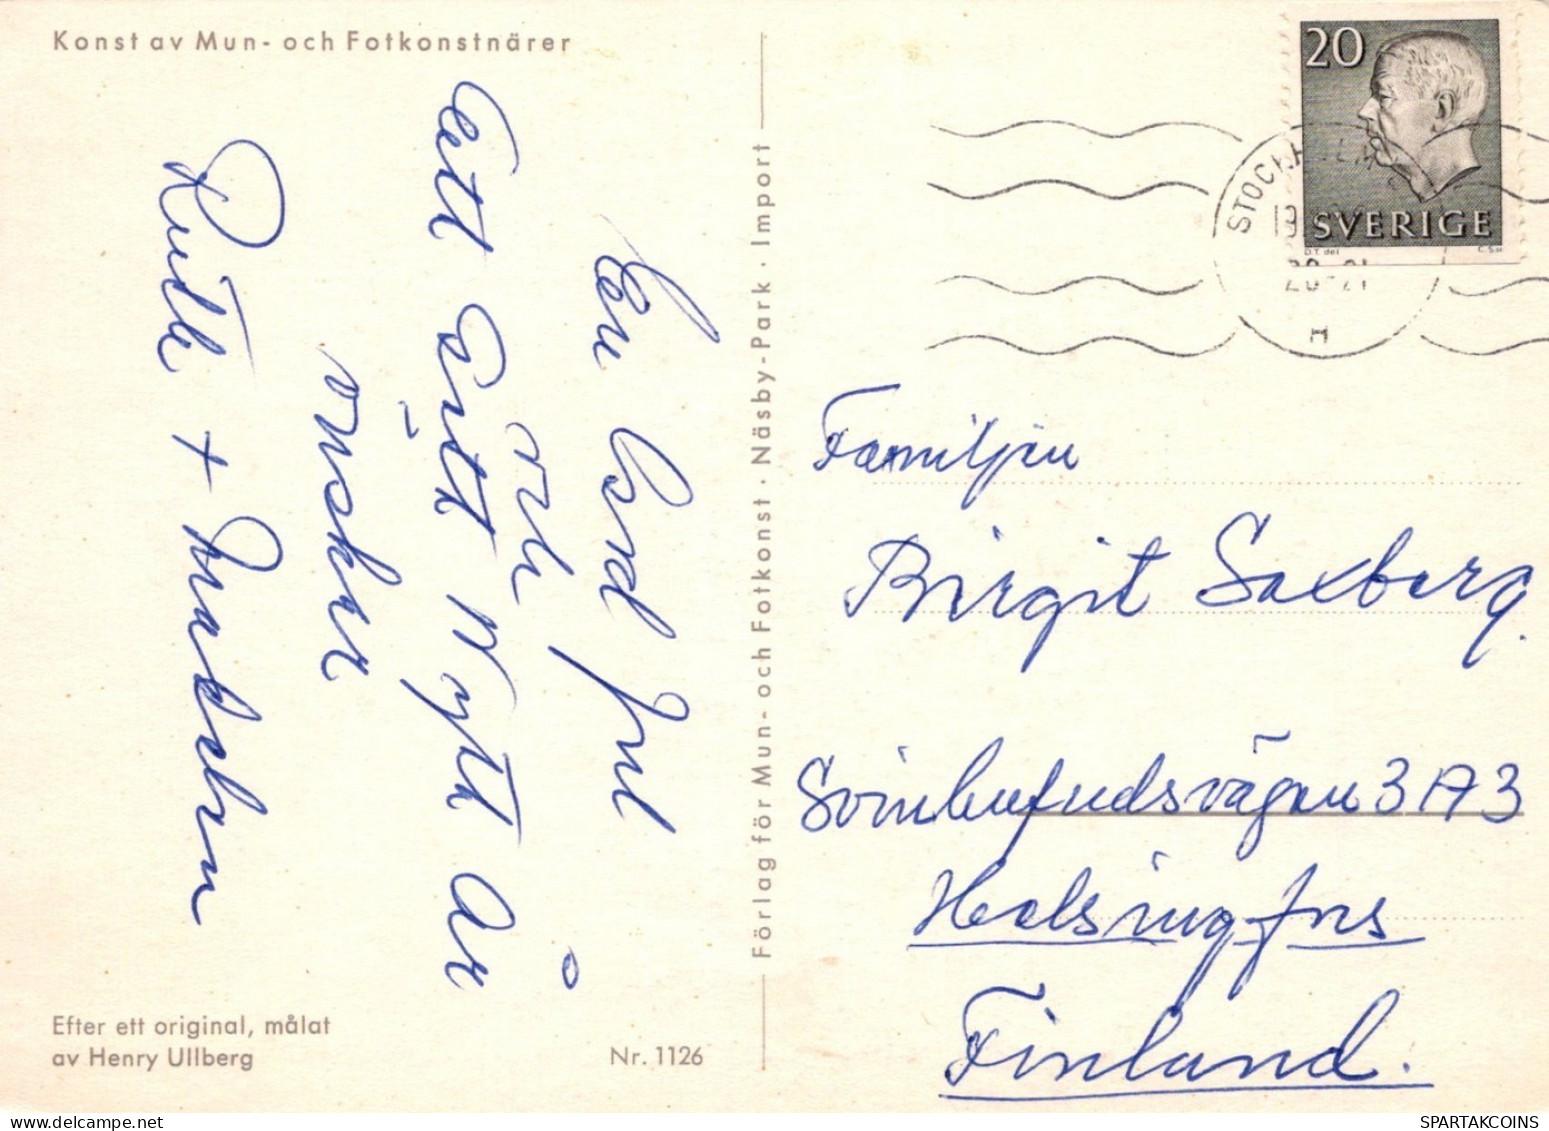 Konst av Mun- och Fotkonstnärer
En God Jul
och
Ett Gott Nytt År
önskar
Ruth +
Efter ett original, målat
av Henry Ullberg
Nr. 1126
Förlag för Mun- och Fotkonst · Näsby-Park · Import
20
SVERIGE
D.T. del
STOCKHOLM
19
20-21
H
Familjen
Birgit Saxberg.
3 A 3
Helsingfors
Finland.
SPARTAKCOINS